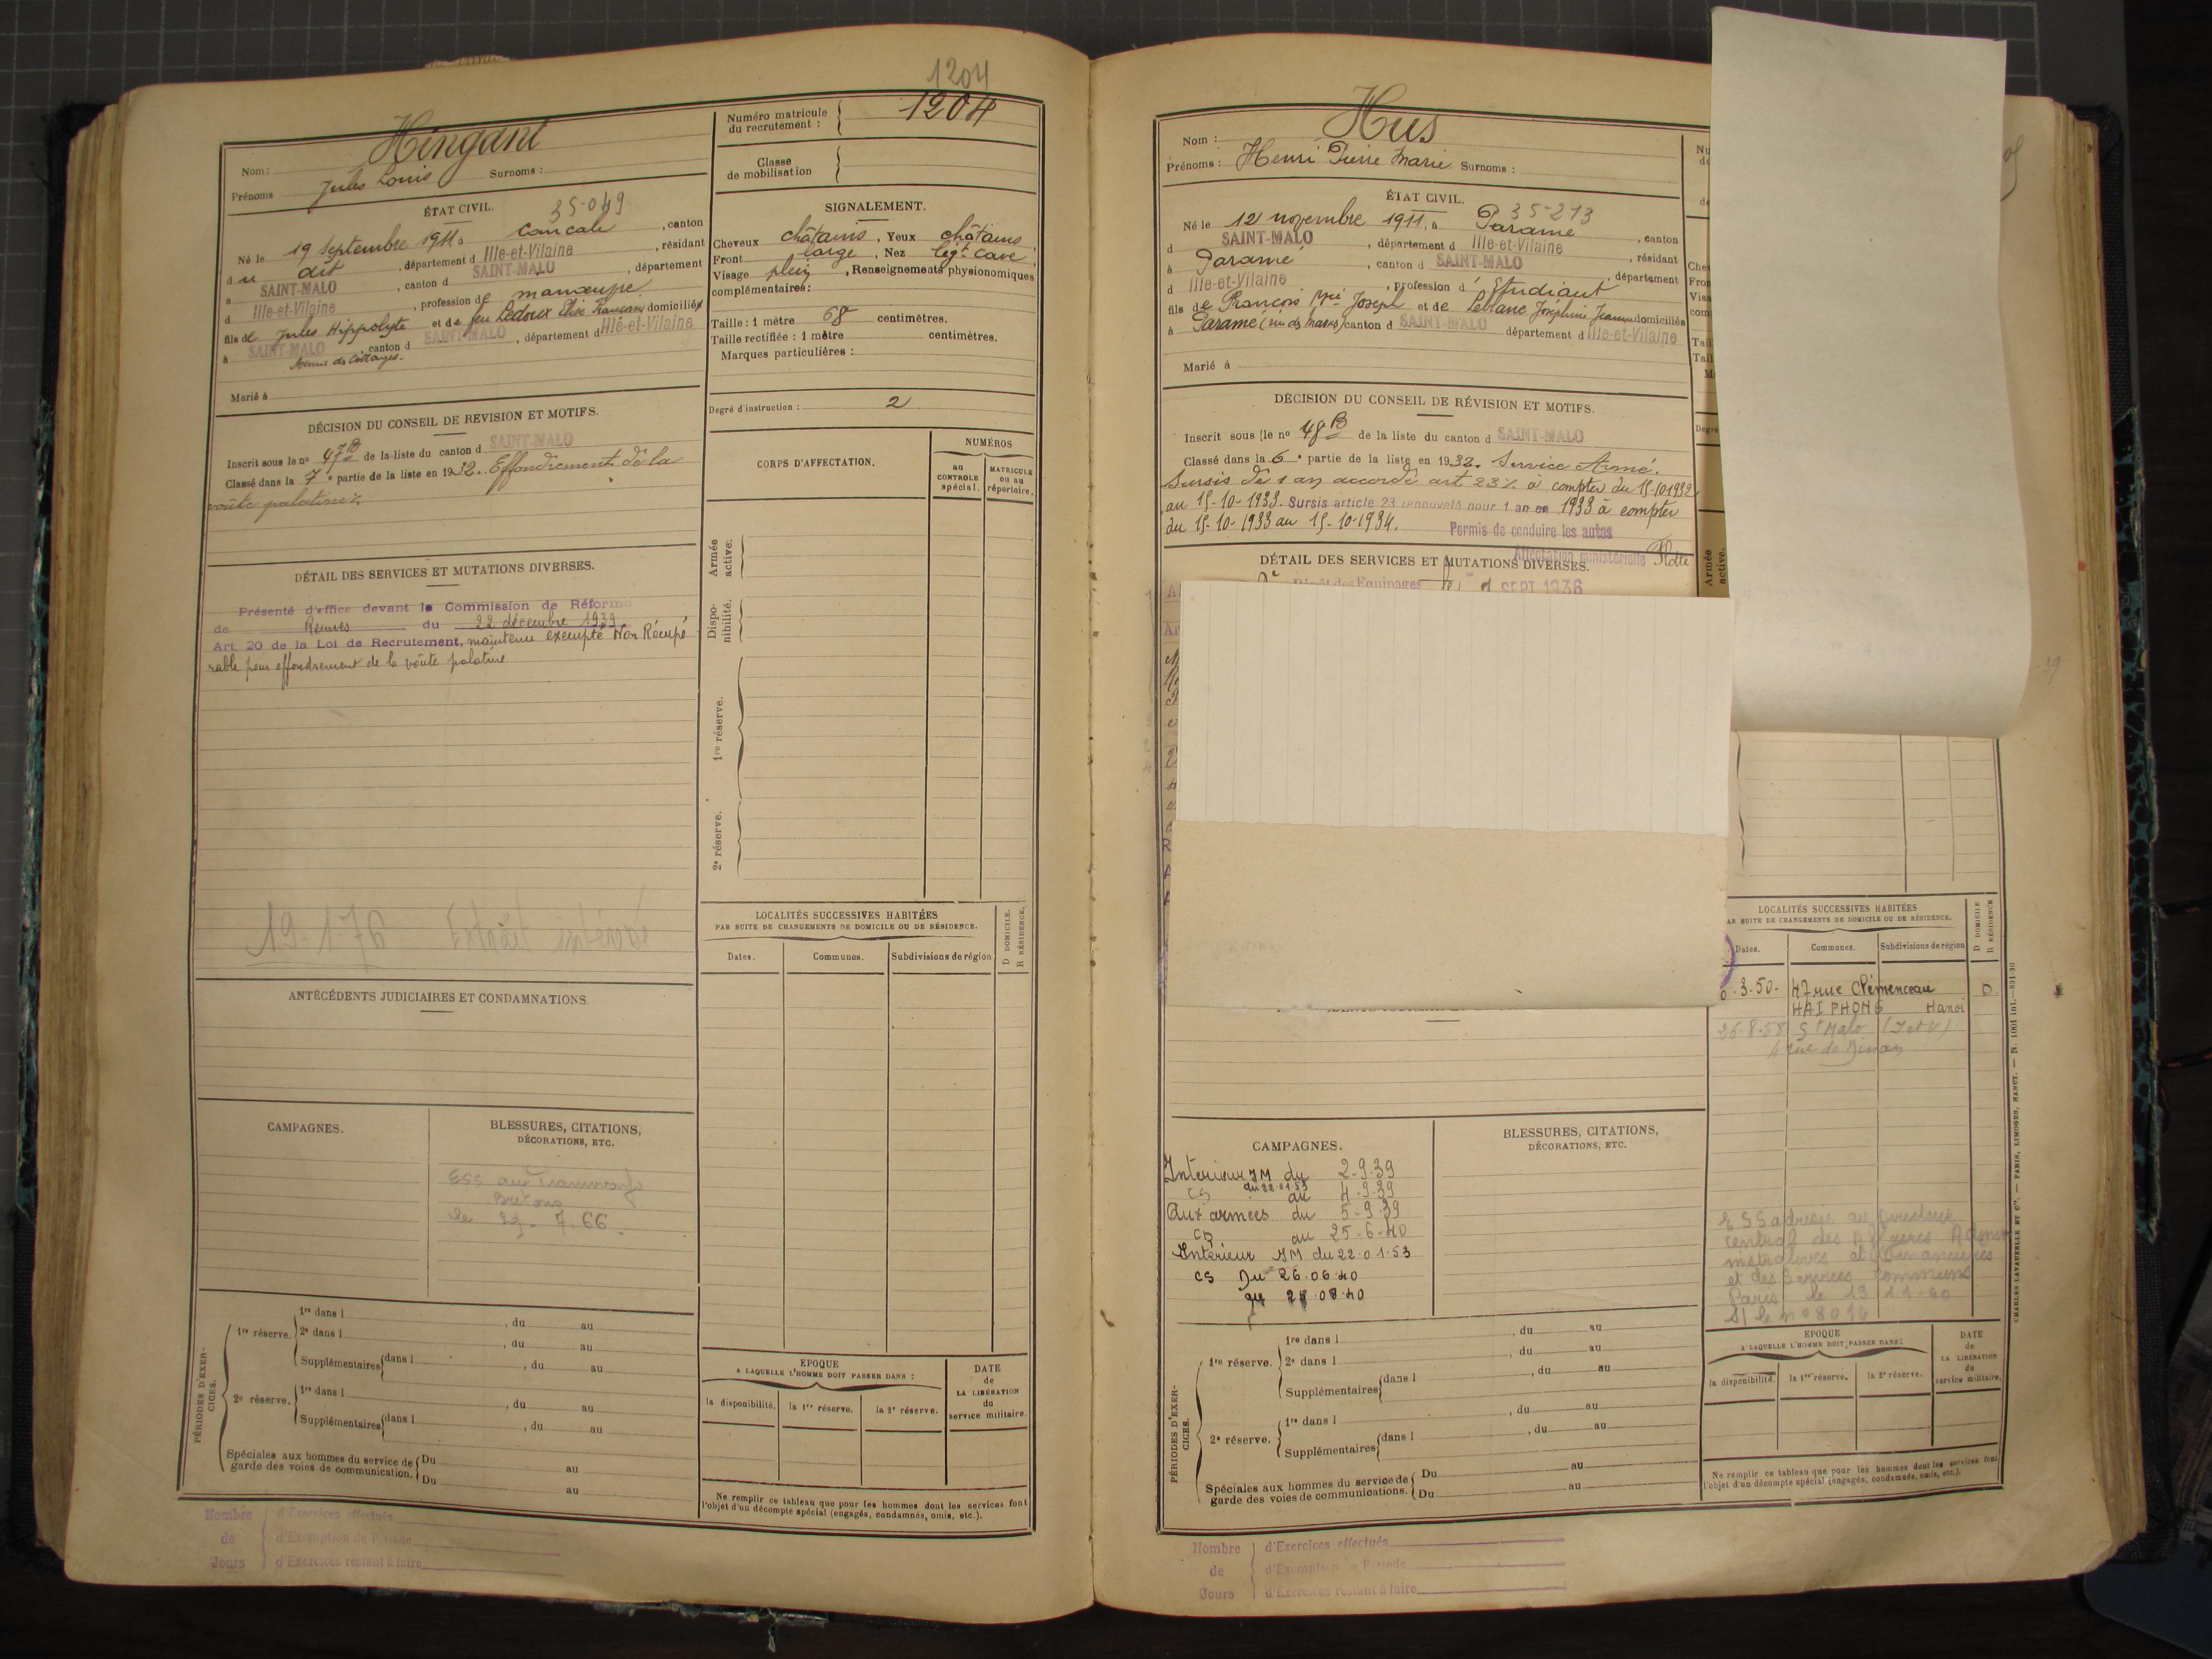 1204
Hingant
Nom :
Jules Louis
Prénoms
Surnoms :
ÉTAT CIVIL.
35-049
Né le 19 septembre 1911 à Cancale, canton
du dit, département d Ille-et-Vilaine, résidant
à SAINT-MALO, canton d SAINT-MALO, département
d Ille-et-Vilaine, profession de manœuvre
fils de Jules Hippolyte et de feu Ledoux domiciliés
à SAINT-MALO canton d SAINT-MALO, département d Ille-et-Vilaine
Avenue des Cottages.
Marié à
DÉCISION DU CONSEIL DE REVISION ET MOTIFS.
Inscrit sous le nº 47B de la liste du canton d SAINT-MALO
Classé dans la 7e partie de la liste en 1932. Effondrement de la
voûte palatine
DÉTAIL DES SERVICES ET MUTATIONS DIVERSES.
Présenté d'office devant la Commission de Réforme
de Rennes du 22 décembre 1939
Art. 20 de la Loi de Recrutement, maintenu exempté Non Récupé
rable pour effondrement de la voûte palatine
19.1.76 Extrait
ANTÉCÉDENTS JUDICIAIRES ET CONDAMNATIONS.
CAMPAGNES.
BLESSURES, CITATIONS,
DÉCORATIONS, ETC.
ESS aux Tramways
Bretons
le 29.7.66
PÉRIODES D'EXER-
CICES.
1re réserve.
1re dans l , du au
2e dans l , du au
Supplémentaires dans l , du au
2e réserve.
1re dans l , du au
Supplémentaires dans l , du au
Spéciales aux hommes du service de
garde des voies de communication.
Du au
Du au
Nombre d'Exercices effectués
de d'Exemption de Période
Jours d'Exercices restant à faire
Numéro matricule
du recrutement :
1204
Classe
de mobilisation
SIGNALEMENT.
Cheveux châtains, Yeux châtains,
Front large, Nez légt cave,
Visage plein, Renseignements physionomiques
complémentaires :
Taille : 1 mètre 68 centimètres.
Taille rectifiée : 1 mètre centimètres.
Marques particulières :
Degré d'instruction : 2
CORPS D'AFFECTATION.
NUMÉROS
au
CONTROLE
spécial.
MATRICULE
ou au
répertoire.
Armée
active.
Dispo-
nibilité.
1re réserve.
2e réserve.
LOCALITÉS SUCCESSIVES HABITÉES
PAR SUITE DE CHANGEMENTS DE DOMICILE OU DE RÉSIDENCE.
D DOMICILE.
R RÉSIDENCE.
Dates.
Communes.
Subdivisions de région
EPOQUE
A LAQUELLE L'HOMME DOIT PASSER DANS :
DATE
de
LA LIBÉRATION
du
service militaire.
la disponibilité.
la 1re réserve.
la 2e réserve.
Ne remplir ce tableau que pour les hommes dont les services font
l'objet d'un décompte spécial (engagés, condamnés, omis, etc.).
Hus
Nom :
Prénoms : Henri Pierre Marie Surnoms :
ÉTAT CIVIL.
35-213
Né le 12 novembre 1911, à Paramé, canton
d SAINT-MALO, département d Ille-et-Vilaine, résidant
à Paramé, canton d SAINT-MALO, département
d Ille-et-Vilaine, profession d'Etudiant
fils de François Joseph et de Leblanc Joséphine Jeanne domiciliés
à Paramé canton d SAINT-MALO département d Ille-et-Vilaine
Marié à
DÉCISION DU CONSEIL DE RÉVISION ET MOTIFS.
Inscrit sous le nº 48B de la liste du canton d SAINT-MALO
Classé dans la 6e partie de la liste en 1932. Service Armé.
Sursis de 1 an accordé art 23 à compter du 15-10-1932
au 15-10-1933. Sursis article 23 renouvelé pour 1 an en 1933 à compter
du 15-10-1933 au 15-10-1934. Permis de conduire les autos
Affectation ministérielle Flotte
DÉTAIL DES SERVICES ET MUTATIONS DIVERSES.
Dépôt des Equipages SEPT 1936
Armée
active.
LOCALITÉS SUCCESSIVES HABITÉES
PAR SUITE DE CHANGEMENTS DE DOMICILE OU DE RÉSIDENCE.
D DOMICILE
R RÉSIDENCE
Dates.
Communes.
Subdivisions de région
3-50- 47 rue Clémenceau D
HAIPHONG Hanoi
26-8-58 St Malo (I et V)
4 rue de Dinan
CAMPAGNES.
Interieur JM du 2-9-39
du 22.01.53
CS au 4-9-39
Aux armées du 5-9-39
CD au 25-6-40
Intérieur JM du 22.01.53
CS Du 26.06.40
BLESSURES, CITATIONS,
DÉCORATIONS, ETC.
ESS adressé au Directeur
central des Affaires Admi
nistratives et Financières
et des Services Communs
Paris le
PÉRIODES D'EXER-
CICES.
1re réserve.
1re dans l , du au
2e dans l , du au
Supplémentaires dans l , du au
2e réserve.
1re dans l , du au
Supplémentaires dans l , du au
Spéciales aux hommes du service de
garde des voies de communications.
Du au
Du au
EPOQUE
A LAQUELLE L'HOMME DOIT PASSER DANS :
DATE
de
LA LIBÉRATION
du
service militaire.
la disponibilité.
la 1re réserve.
la 2e réserve.
Ne remplir ce tableau que pour les hommes dont les services font
l'objet d'un décompte spécial (engagés, condamnés, omis, etc.).
CHARLES-LAVAUZELLE ET Cie. — PARIS, LIMOGES, NANCY. — N. 1001 int.—831-30
Nombre d'Exercices effectués
de d'Exemption de Période
Jours d'Exercices restant à faire